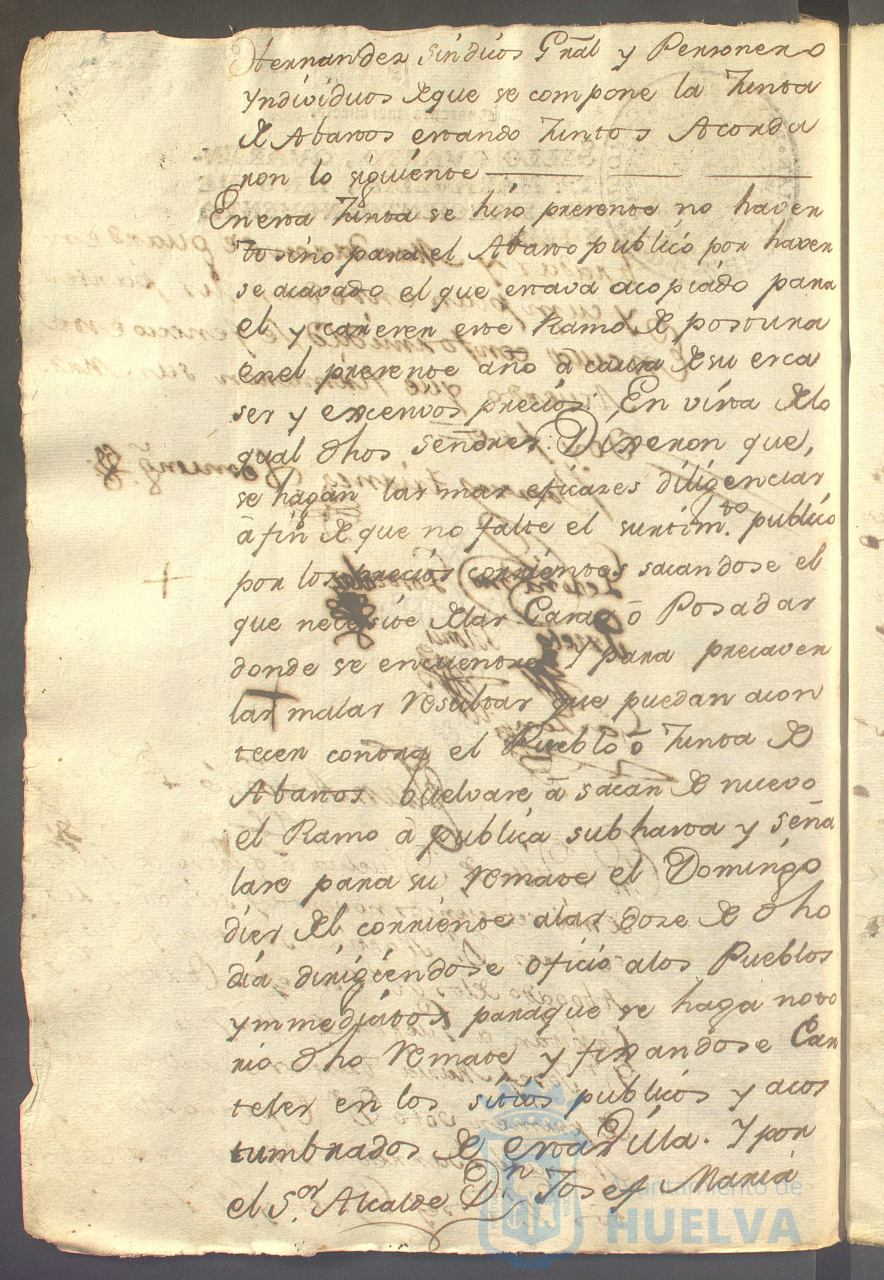 Hernandez sindicos Gräl y Personero
Yndividuos de que se compone la Junta
de Abastos estando Juntos Acorda
ron lo siguiente
En esta Junta se hizo presente no haver
tosino para el Abasto publico por haver
se acavado el que estava acopiado para
el y careser este Ramo de postura
en el presente año a causa de su esca
ses y excesivos precios. En vista de lo
qual dhos Señores: Dixeron que,
se hagan las mas eficazes diligencias
a fin de que no falte el surtim.to publico
por los precios corrientes sacandose el
que necesite de las Casas ō Posadas
donde se encuentre Y para precaver
las malas resultas que puedan acon
tecer contra el Pueblo ō Junta de
Abastos buelvase a sacar de nuevo
el Ramo a publica subhasta y seña
lase para su remate el Domingo
dies del corriente a las doze de dho
dia dirigiendose oficio a los Pueblos
ymmediatos para que se haga noto
rio dho remate y fixandose Car
teles en los sitios publicos y acos
tumbrados de esta Villa. Y por
el S.or Alcalde Dn Josef Maria
Ayuntamiento de
HUELVA